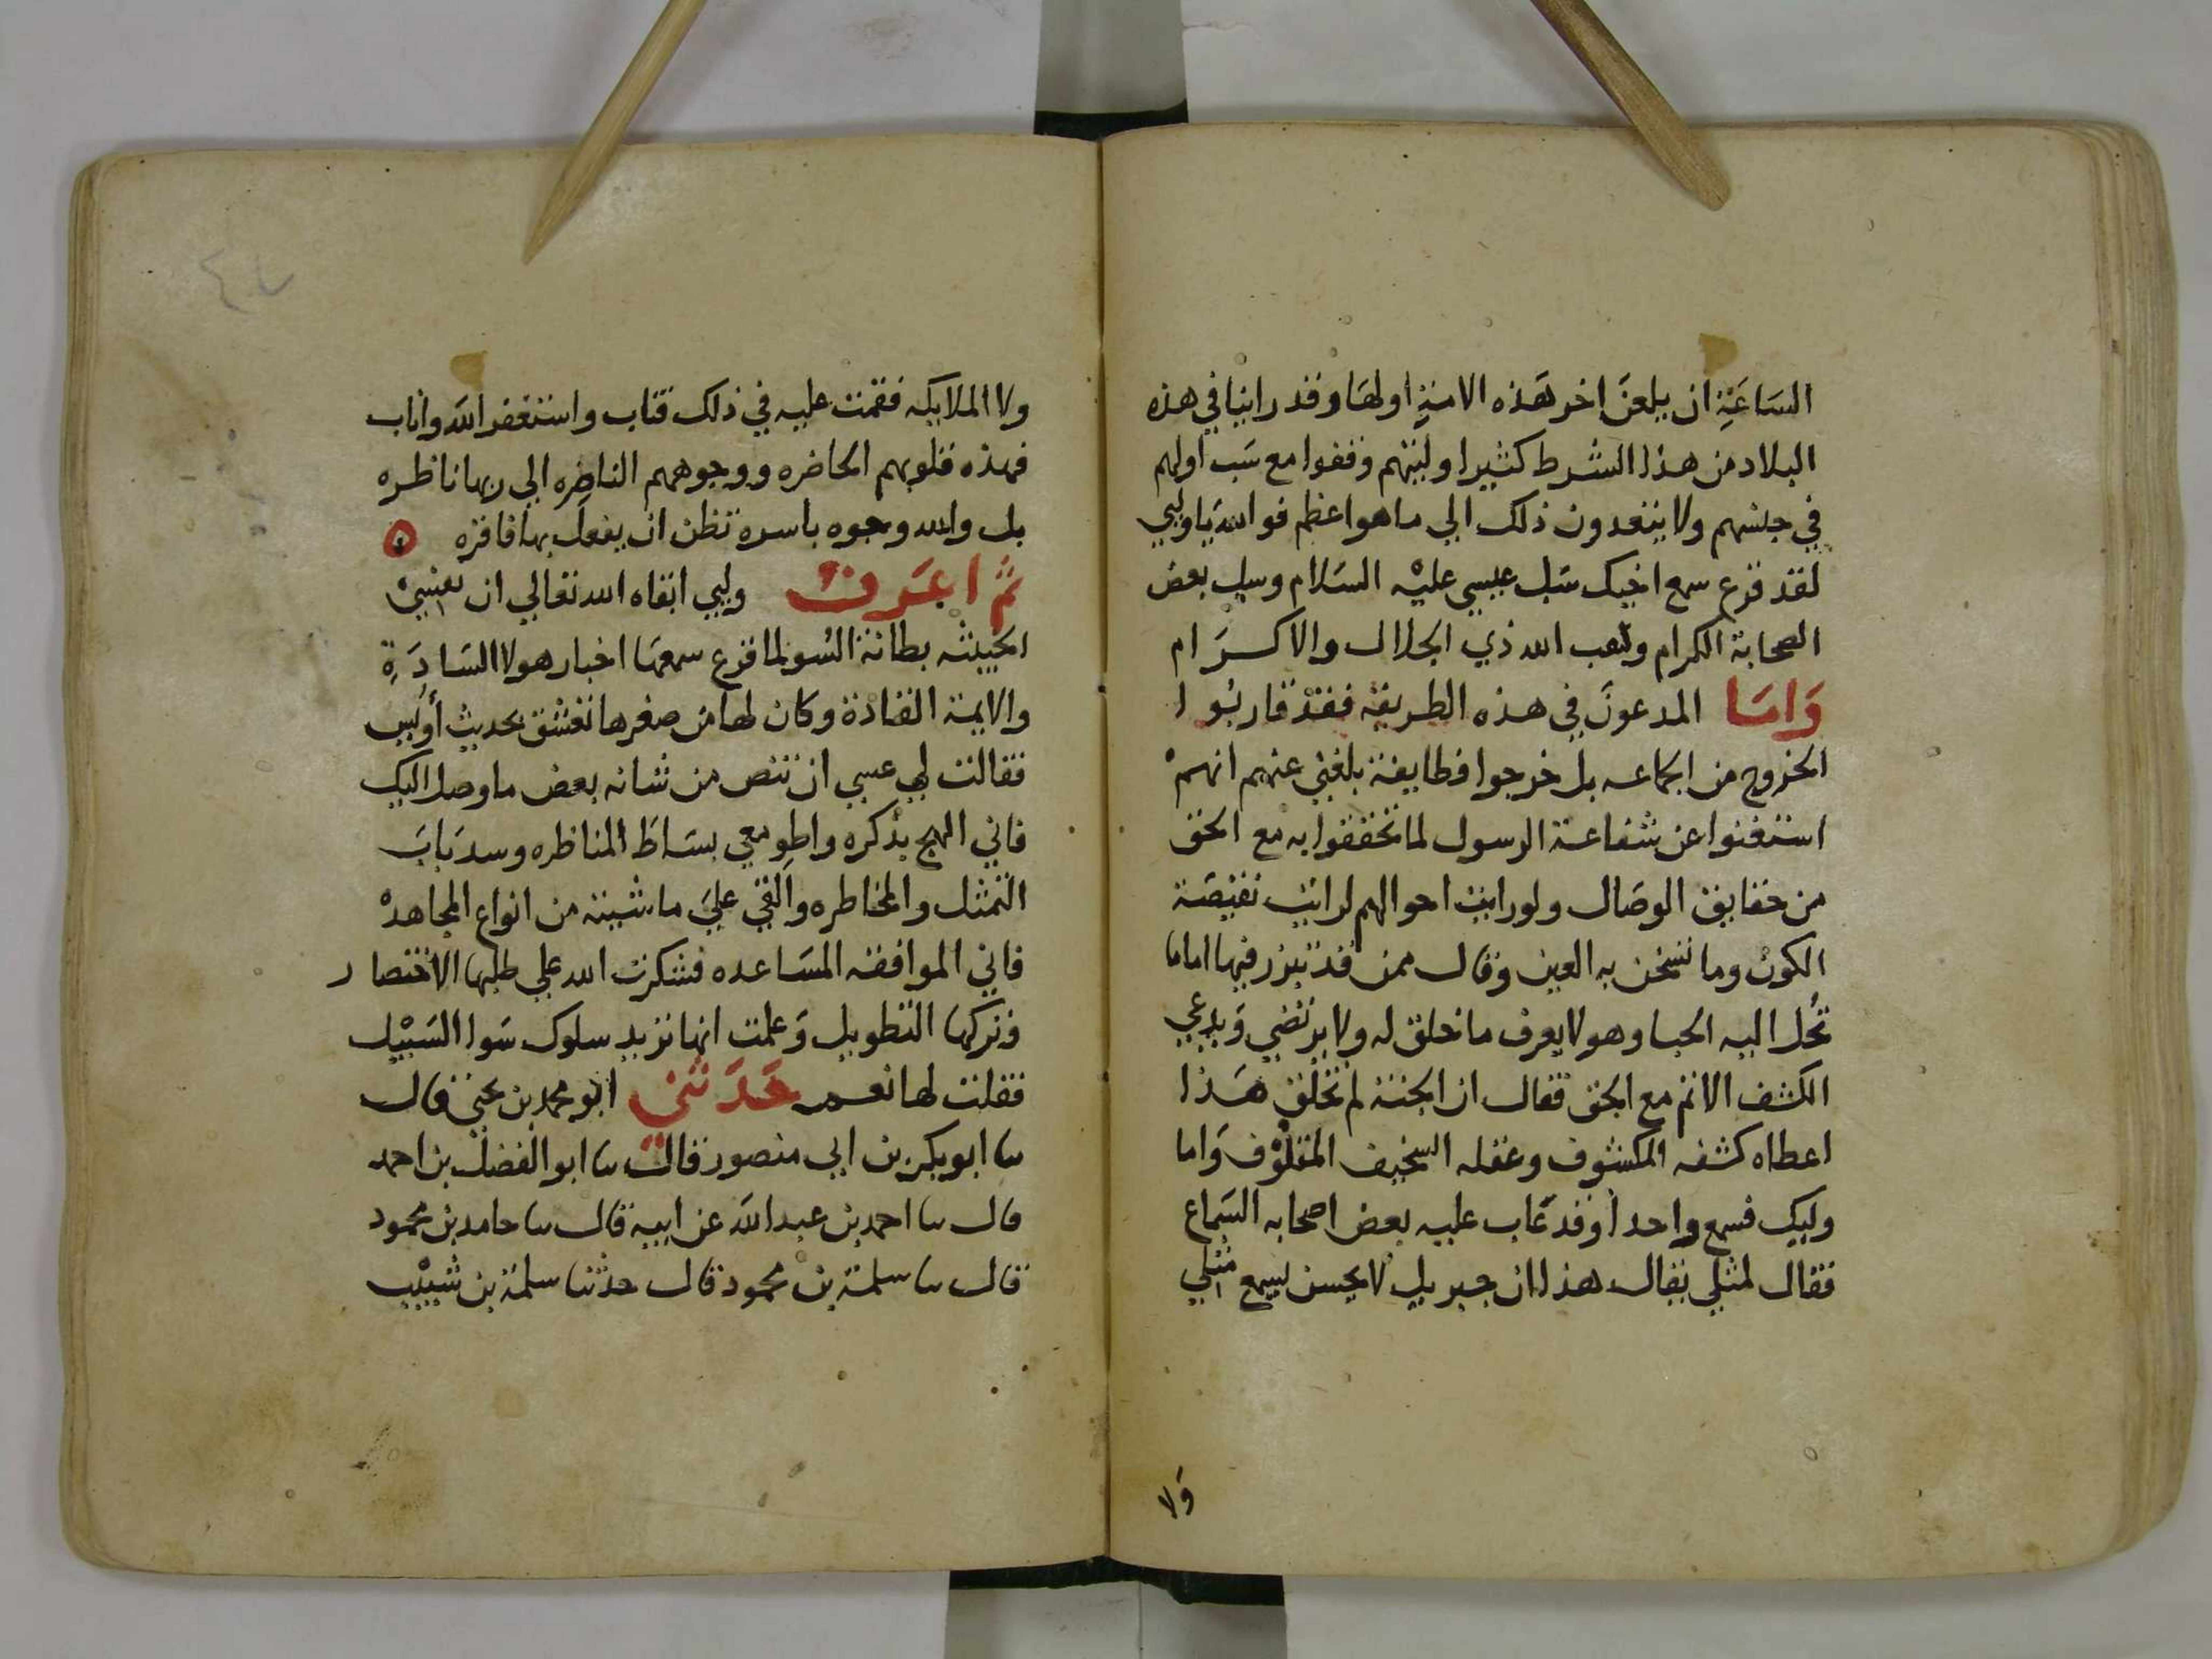 الساعة ان يلعن اخر هذه الامة اولها وقد راينا في هذه
البلاد من هذا الشرط كثيرا وليتهم وقفوا مع سب اولهم
في جنسهم ولا يتعدون ذلك الي ما هو اعظم فوالله يا وليي
لقد قرع سمع اخيك سب عيسي عليه السلام وسب بعض
الصحابة الكرام وتعب الله ذي الجلال والاكرام
واما المدعون في هذه الطريقة فقد قاربوا
الخروج من الجماعه بل خرجوا فطايفة بلغني عنهم انهم
استغنوا عن شفاعة الرسول لما تحققوا به مع الحق
من حقايق الوصال ولو رايت احوالهم لرايت نقيصة
الكون وما تسخن به العين وقال ممن قد تبرز فيها اماما
تحل اليه الحبا وهو لا يعرف ما خلق له ولا يرتضي ويدعي
الكشف الاتم مع الحق فقال ان الجنة لم تخلق هذا
اعطاه كشفه المكشوف وعقله السخيف المقلوف واما
وليك فسمع واحدا وقد عاب عليه بعض اصحابه السماع
فقال لمثلي يقال هذا ان جبريل لا يحسن يسمع مثلي
ولا
ولا الملايكه فقمت عليه في ذلك فتاب واستغفر الله واناب
فهذه قلوبهم الحاضره ووجوههم الناضره الي ربها ناظره
بل والله وجوه باسرة تظن ان يفعل بها فاقره
ثم اعرف وليي ابقاه الله تعالي ان نفسي
الخبيثه بطانة السو لما قرع سمعها اخبار هولا السادة
والايمة القادة وكان لها من صغرها تعشق بحديث أويس
فقالت لي عسي ان تنص من شانه بعض ما وصل اليك
فاني الهج بذكره واطو معي بساط المناظره وسد باب
التمثل والمخاطره والق علي ما شيت من انواع المجاهده
فاني الموافقه المساعده فشكرت الله علي طلبها الاختصار
وتركها التطويل وعلمت انها تريد سلوك سوا السبيل
فقلت لها نعم حدثني ابو محمد بن يحيي قال
نا ابو بكر بن ابي منصور قال نا ابو الفضل بن احمد
قال نا احمد بن عبد الله عن ابيه قال نا حامد بن محمود
قال نا سلمة بن محمود قال حدثنا سلمة بن شبيب